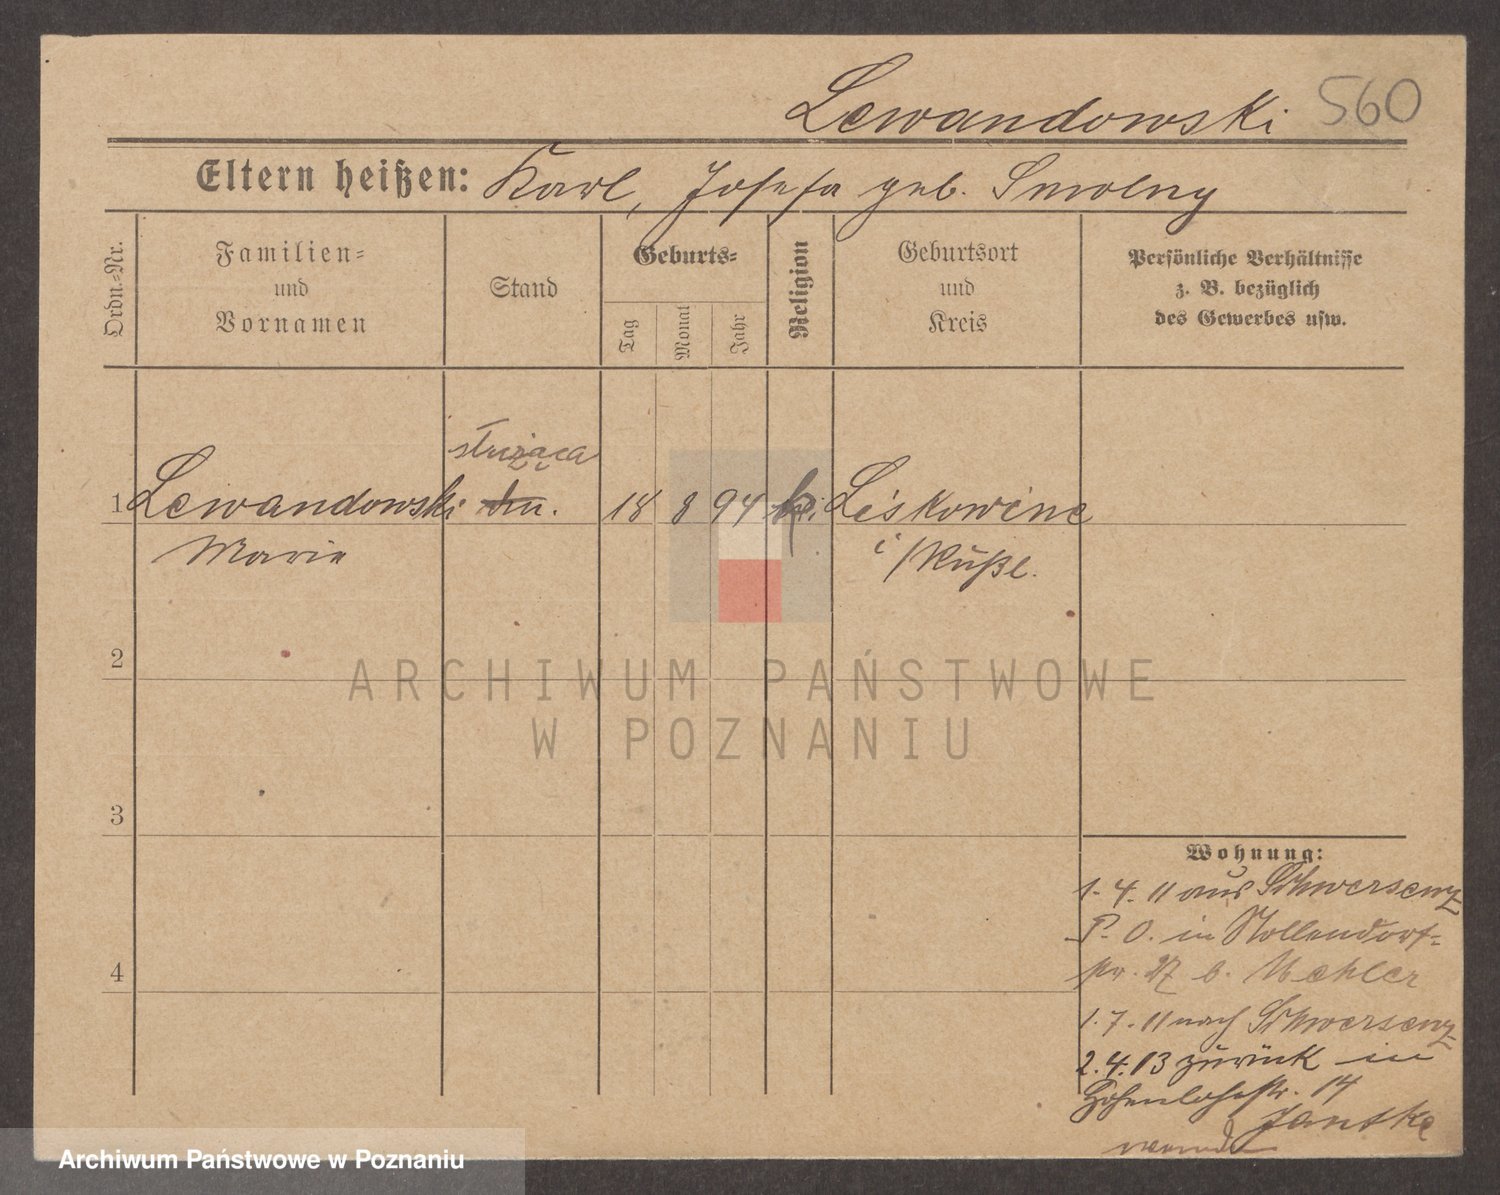 Lewandowski 560
Eltern heißen: Karl, Josefa geb. Smolny
Ordn.-Nr.
Familien-
und
Vornamen
Stand
Geburts-
Tag
Monat
Jahr
Religion
Geburtsort
und
Kreis
Persönliche Verhältnisse
z. B. bezüglich
des Gewerbes usw.
służąca
1 Lewandowski 18 8 94 Liskowine
Marie
2
3
4
ARCHIWUM PAŃSTWOWE
W POZNANIU
Wohnung:
1. 4. 11 aus Schwersenz
P. O. in Nollendorf-
str. 27 b. Mehler
1. 7. 11 nach Schwersenz
2. 4. 13 zurück in
Hohenlohestr. 14
Jantke
Archiwum Państwowe w Poznaniu